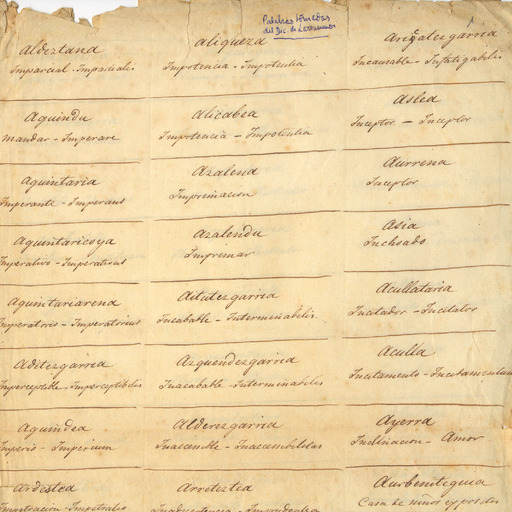 Palabras
del Dic. de Larramendi
Aldeztana
Imparcial - Imparcialis
Aguindu
Mandar - Imperare
Aguintaria
Imperante - Imperans
Aguintaricoya
Imperativo - Imperativus
Aguintariarena
Imperatorio - Imperatorius
Aditezgarria
Imperceptible - Imperceptibilis
Aguindea
Imperio - Imperium
Ardestea
Impetracion - Impetratio
Aliqueza
Impotencia - Impotentia
Alicabea
Impotencia - Impotentia
Azalena
Imprimacion
Azalendu
Imprimar
Aititezgarria
Inacabable - Interminabilis
Azquendezgarria
Inacabable - Interminabilis
Alderezgarria
Inaccesible - Inaccesibilitas
Arreteztea
Inadvertencia - Imprudentia
Aricatezgarria
Incansable - Infatigabilis
Aslea
Inceptor - Inceptor
Aurrena
Inceptor
Asia
Inchoado
Acullataria
Incitador - Incitator
Aculla
Incitamento - Incitamentum
Ayerra
Inclinacion - Amor
Aurbeniteguia
Casa de niños expositos